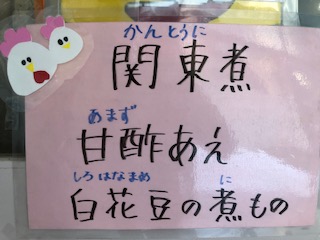 かんとうに
関東煮
あまず
甘酢あえ
しろはなまめ に
白花豆の煮もの